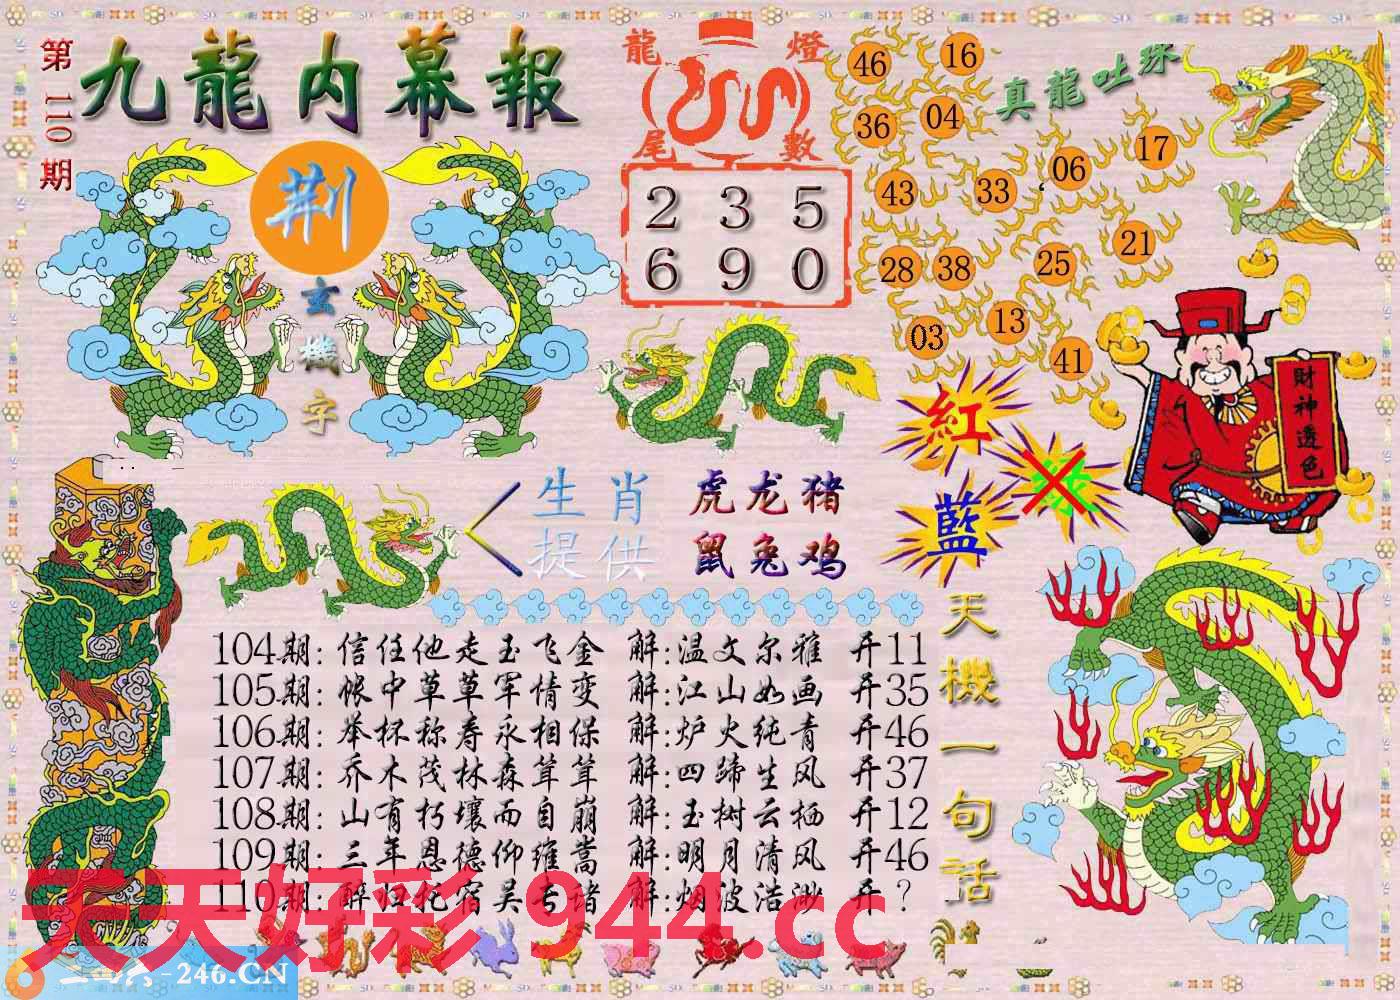 第110期
九龍内幕報
荆
玄機字
龍燈
尾數
2 3 5
6 9 0
真龍吐珠
46 16
36 04
43 33 06 17
28 38 25 21
03 13 41
財神透色
紅
藍
生肖
提供
虎龙猪
鼠兔鸡
天機一句話
104期:信任他走玉飞金 解:温文尔雅 开11
105期:帐中草草军情变 解:江山如画 开35
106期:举杯称寿永相保 解:炉火纯青 开46
107期:乔木茂林森茸茸 解:四蹄生风 开37
108期:山有朽壤而自崩 解:玉树云栖 开12
109期:三年恩德仰维嵩 解:明月清风 开46
110期:醉归托宿吴专诸 解:烟波浩渺 开?
天天好彩 944.cc
二四六-246.CN